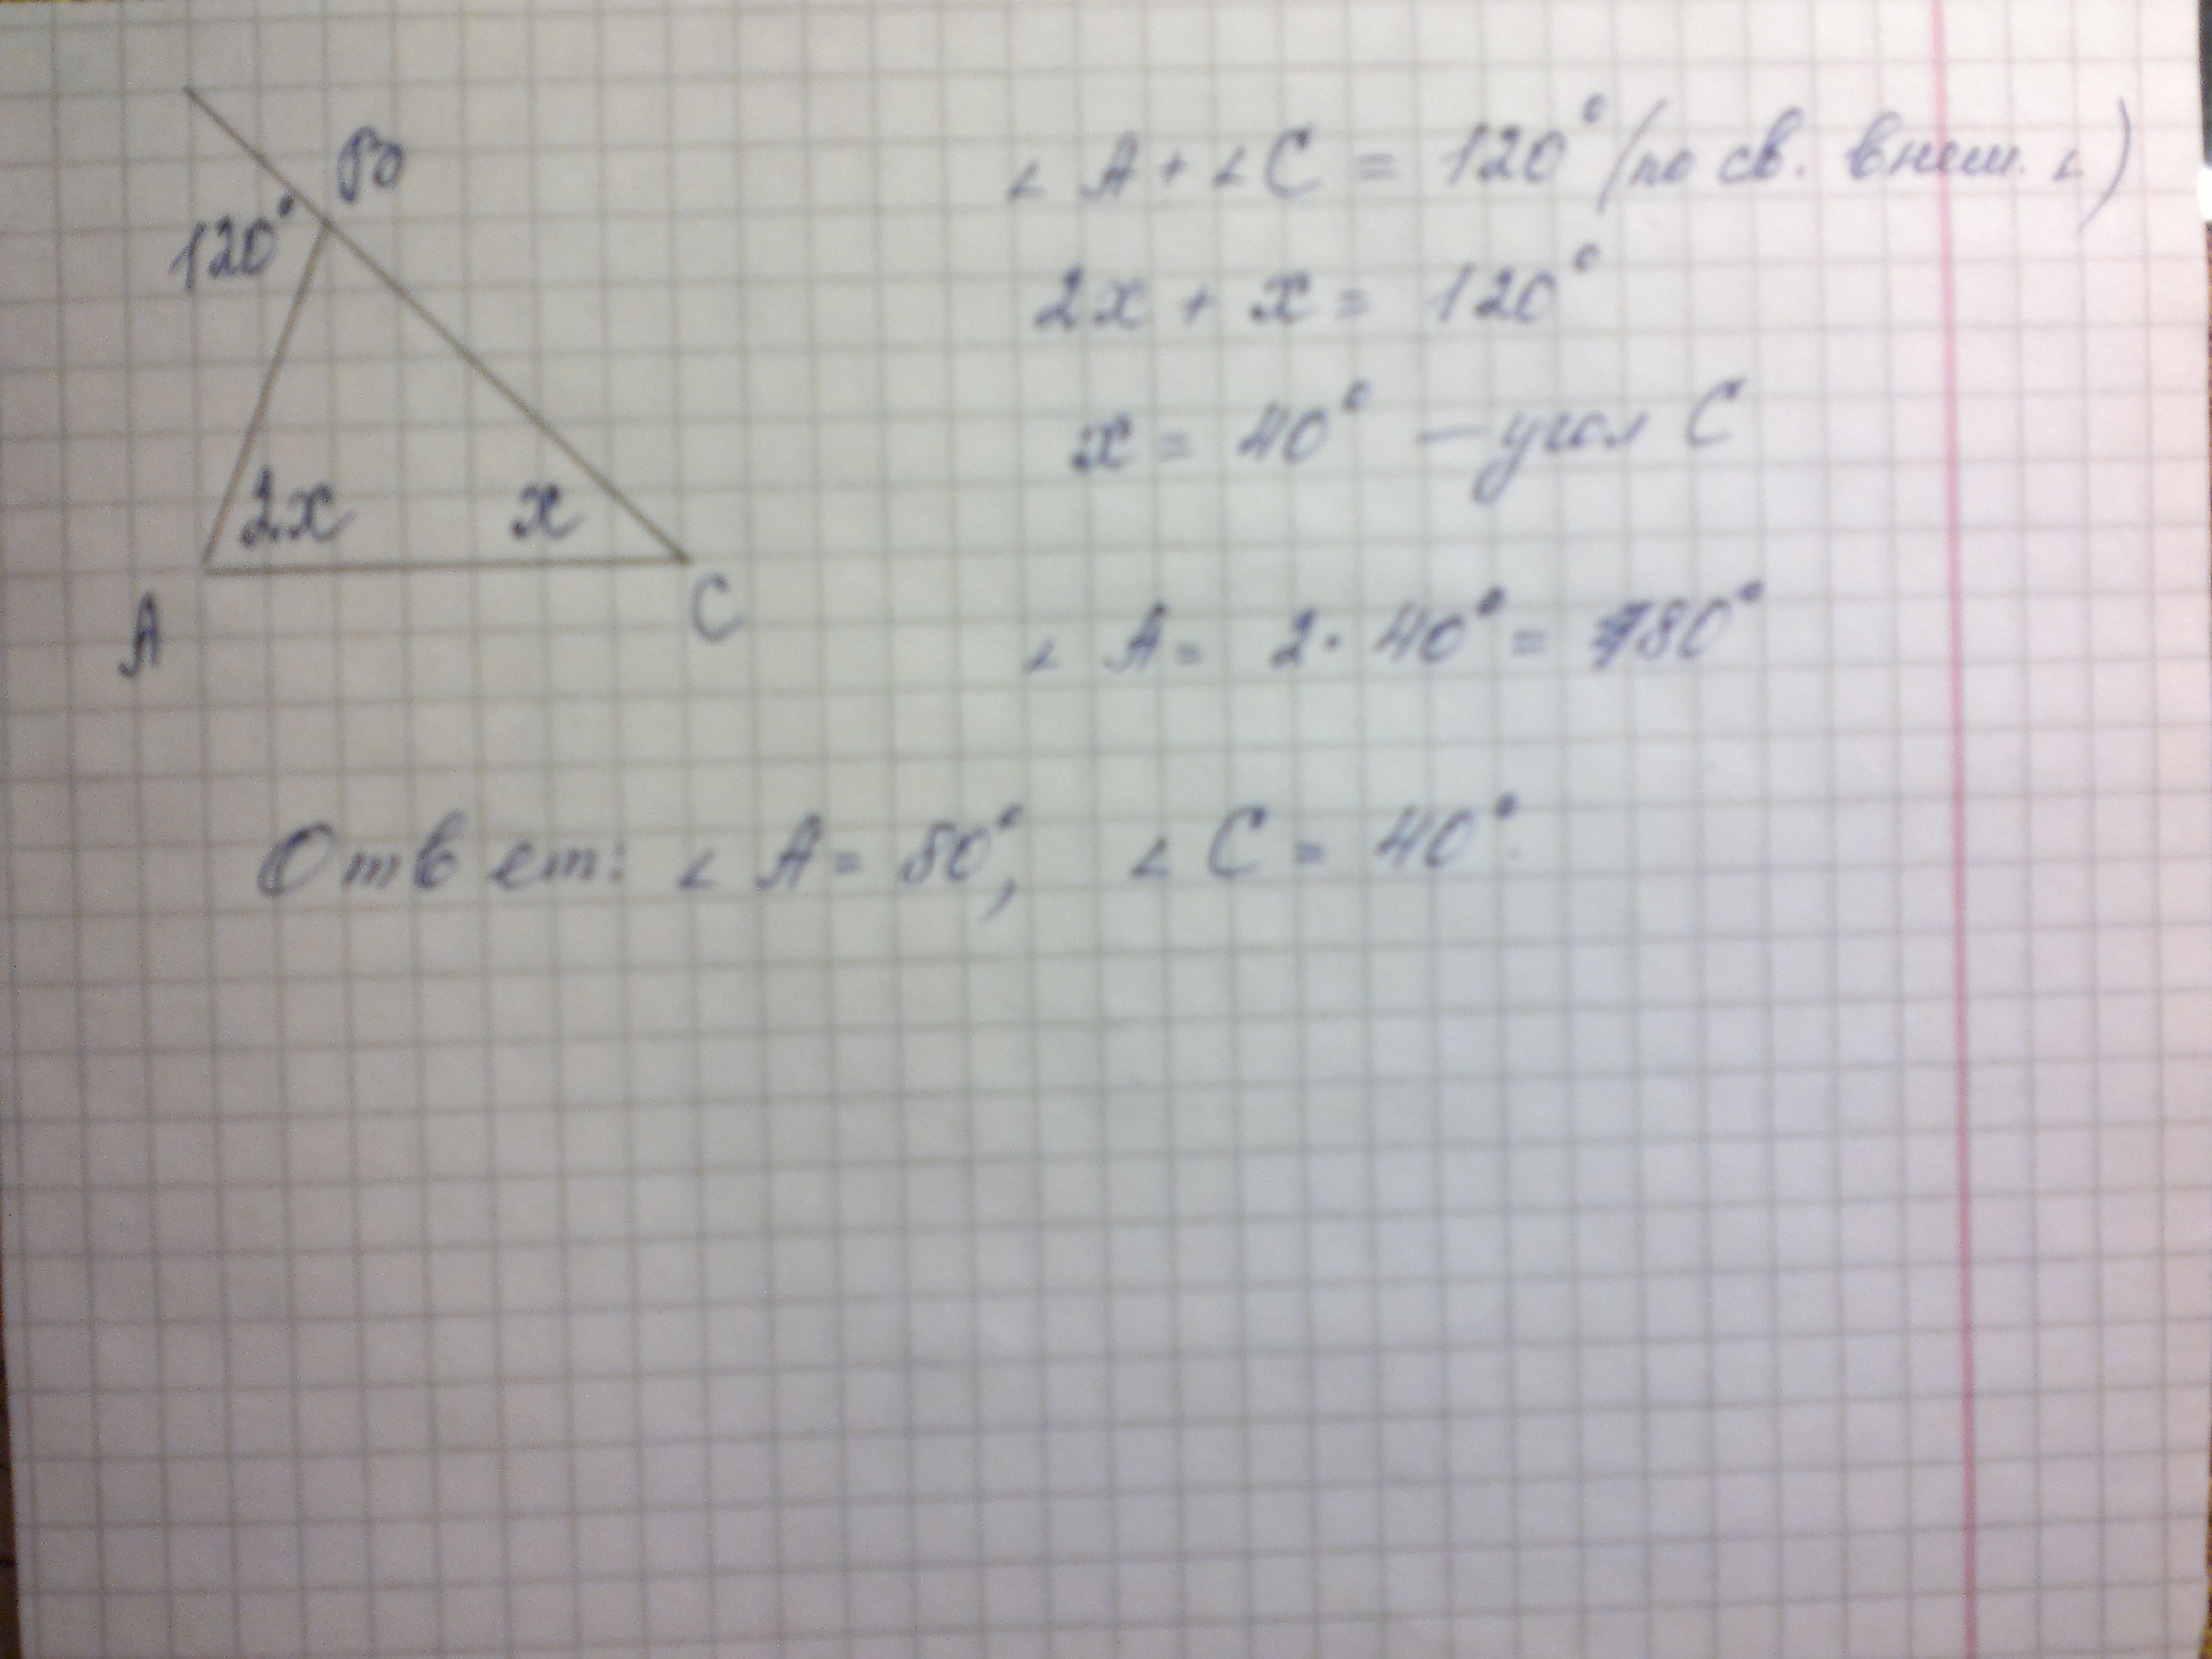 B
120°
2x
x
A
C
∠ A + ∠ C = 120° (по св. внеш. ∠)
2x + x = 120°
x = 40° — угол C
∠ A = 2 · 40° = 80°
Ответ: ∠ A = 80°, ∠ C = 40°.